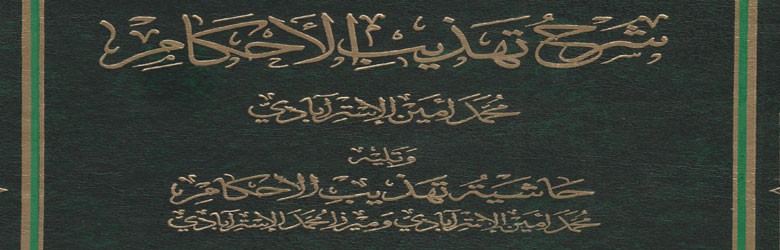 شرح تهذيب الأحكام
محمد أمين الإسترآبادي
وتليه
حاشية تهذيب الأحكام
محمد أمين الإسترآبادي وميرزا محمد الإسترآبادي